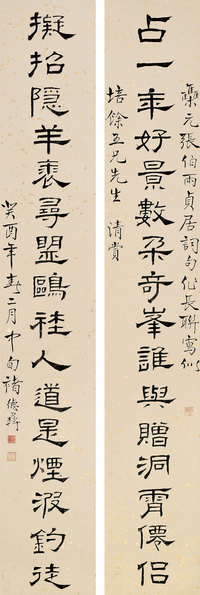 元張伯雨貞居詞句化長聯寫似
占一年好景數朵奇峯誰與贈洞霄僊侶
培餘五兄先生 清賞
擬招隱羊裘尋盟鷗社人道是煙波釣徒
癸酉年春二月中旬褚德彝